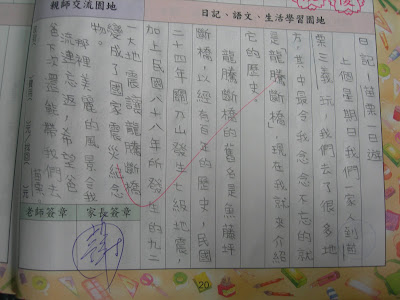 親師交流園地
日記、語文、生活學習園地
日記:苗栗一日遊
上個星期日我們一家人到苗
栗三義玩,我們去了很多地
方,其中最令我念念不忘的就
是「龍騰斷橋」,現在我就來介紹
它的歷史。
龍騰斷橋的舊名是魚藤坪
斷橋,以經有百年的歷史,民國
二十四年關刀山發生七級地震,
加上民國八十八年所發生的九二
一大地震讓龍騰斷橋
變成了國家震災紀念
物。
那裡美麗的風景令我
流連忘返,希望爸
爸下次還能帶我們去
老師簽章
家長簽章
20